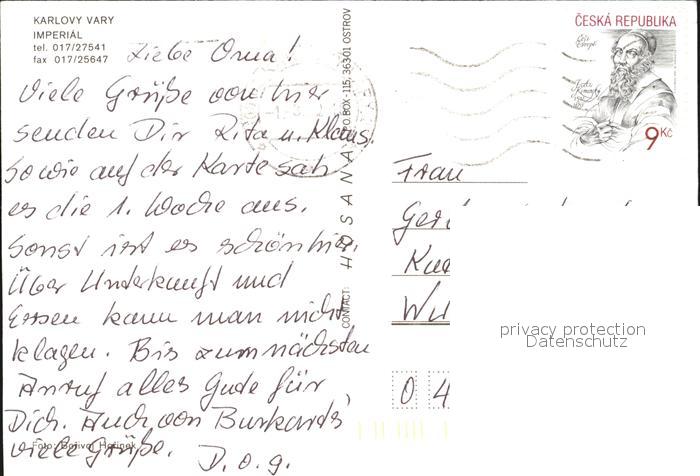 KARLOVY VARY
IMPERIÁL
tel. 017/27541
fax 017/25647
Liebe Oma!
Viele Grüße von hier
senden Dir Rita u. Klaus.
Sowie auf der Karte sah
es die 1. Woche aus.
Sonst ist es schön hier.
Über Unterkunft und
Essen kann man nicht
klagen. Bis zum nächsten
Anruf alles Gute für
Dich. Auch von Burkards
viele Grüße.
D. o. g.
Foto: Bořivoj Hořínek
CONTACT: HOSANA P.O.BOX - 115, 36301 OSTROV
ČESKÁ REPUBLIKA
9 Kč
Frau
0 4
privacy protection
Datenschutz